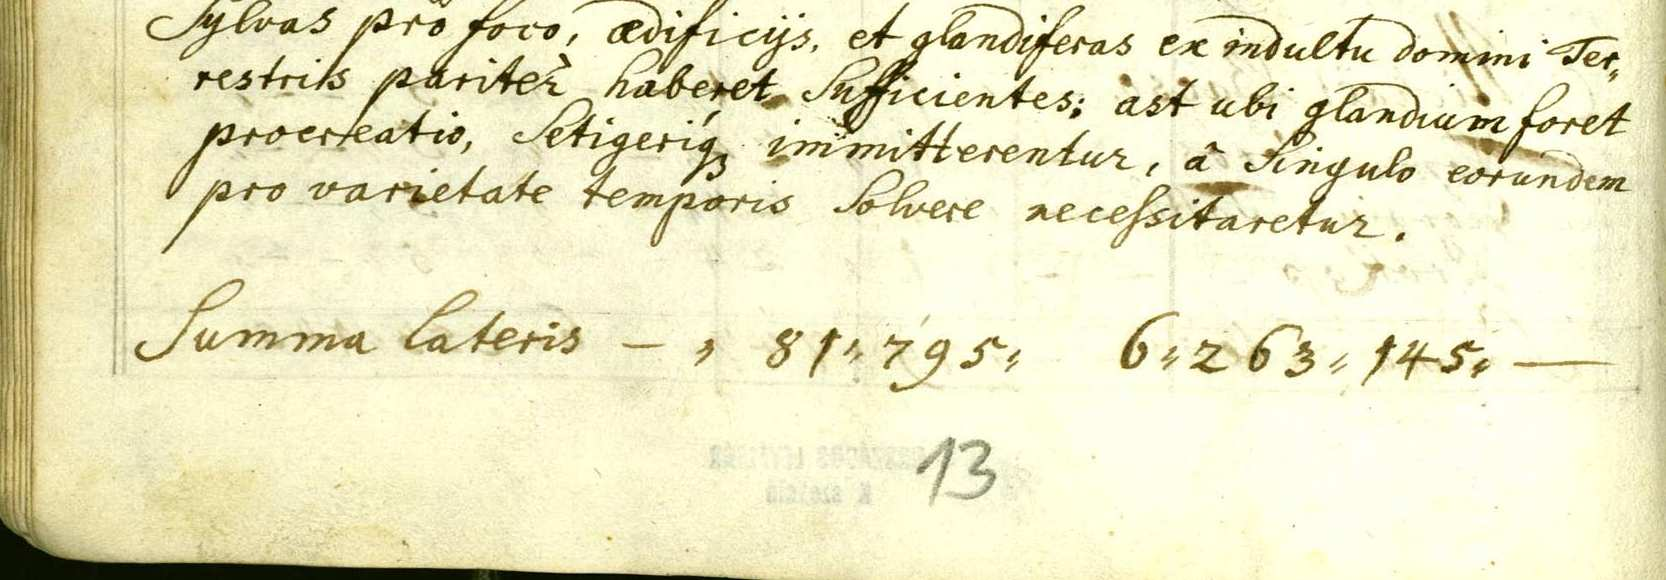 Sylvas pro foco, ædificijs, et glandiferas ex indultu domini Ter„
restris pariter haberet Sufficientes; ast ubi glandium foret
procreatio, Setigeriq3 immitterentur, â Singulo eorundem
pro varietate temporis Solvere necessitaretur.
Summa Lateris — „ 81„ 795„ 6„ 263„ 145„ —
13